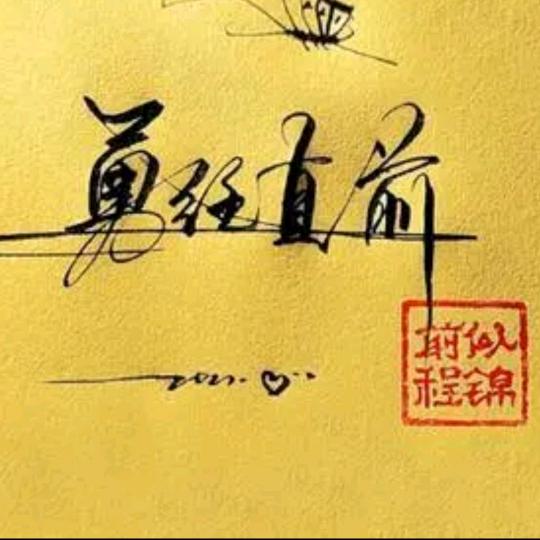 勇往直前
前程
似锦